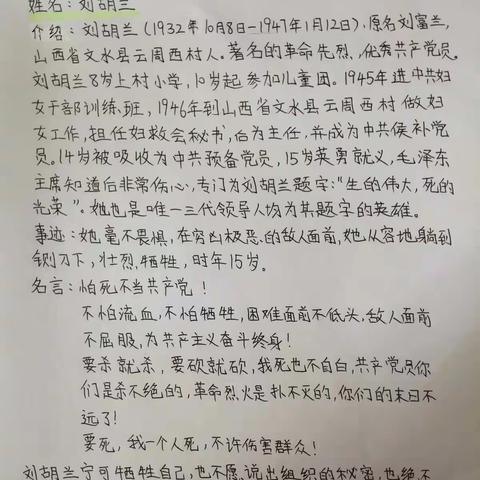 姓名：刘胡兰
介绍：刘胡兰（1932年10月8日-1947年1月12日），原名刘富兰，
山西省文水县云周西村人。著名的革命先烈，优秀共产党员。
刘胡兰8岁上村小学，10岁起参加儿童团。1945年进中共妇
女干部训练班，1946年到山西省文水县云周西村做妇
女工作，担任妇救会秘书，后为主任，并成为中共候补党
员。14岁被吸收为中共预备党员，15岁英勇就义，毛泽东
主席知道后非常伤心，专门为刘胡兰题字：“生的伟大，死的
光荣”。她也是唯一三代领导人均为其题字的英雄。
事迹：她毫不畏惧，在穷凶极恶的敌人面前，她从容地躺到
铡刀下，壮烈牺牲，时年15岁。
名言：怕死不当共产党！
不怕流血，不怕牺牲，困难面前不低头，敌人面前
不屈服，为共产主义奋斗终身！
要杀就杀，要砍就砍，我死也不自白，共产党员你
们是杀不绝的，革命烈火是扑不灭的，你们的末日不
远了！
要死，我一个人死，不许伤害群众！
刘胡兰宁可牺牲自己，也不愿说出组织的秘密，也绝不